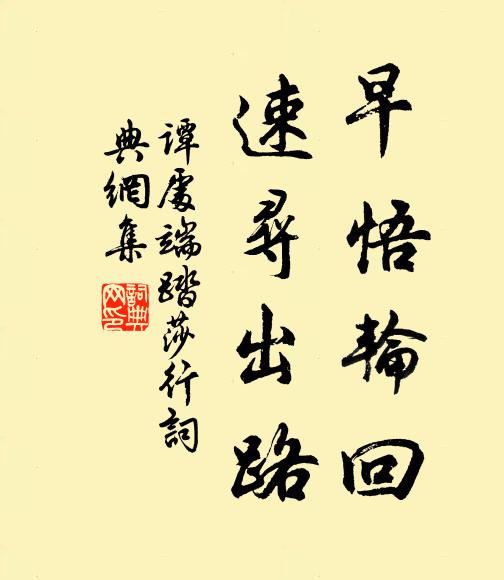 早悟輪回
速尋出路
譚處端踏莎行詞
典網集
詞典網印